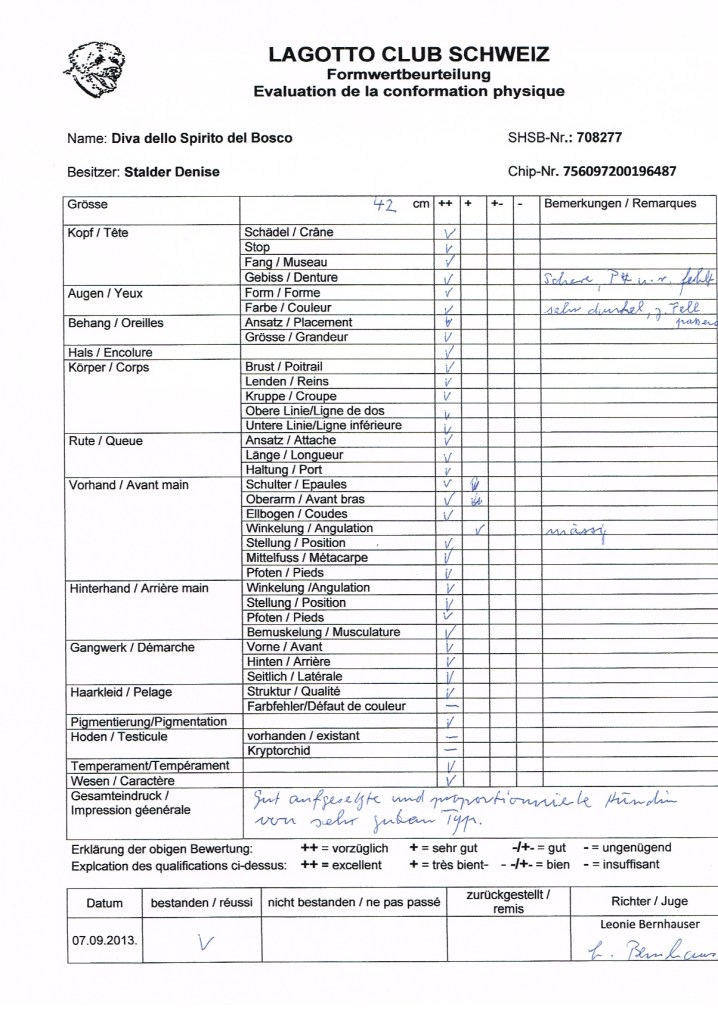 LAGOTTO CLUB SCHWEIZ
Formwertbeurteilung
Evaluation de la conformation physique
Name: Diva dello Spirito del Bosco SHSB-Nr.: 708277
Besitzer: Stalder Denise Chip-Nr. 756097200196487
Grösse 42 cm ++ + +- - Bemerkungen / Remarques
Kopf / Tête Schädel / Crâne
Stop
Fang / Museau
Gebiss / Denture Schere, fehlt
Augen / Yeux Form / Forme
Farbe / Couleur sehr dunkel, z. Fell
Behang / Oreilles Ansatz / Placement
Grösse / Grandeur
Hals / Encolure
Körper / Corps Brust / Poitrail
Lenden / Reins
Kruppe / Croupe
Obere Linie/Ligne de dos
Untere Linie/Ligne inférieure
Rute / Queue Ansatz / Attache
Länge / Longueur
Haltung / Port
Vorhand / Avant main Schulter / Epaules
Oberarm / Avant bras
Ellbogen / Coudes
Winkelung / Angulation mässig
Stellung / Position
Mittelfuss / Métacarpe
Pfoten / Pieds
Hinterhand / Arrière main Winkelung /Angulation
Stellung / Position
Pfoten / Pieds
Bemuskelung / Musculature
Gangwerk / Démarche Vorne / Avant
Hinten / Arrière
Seitlich / Latérale
Haarkleid / Pelage Struktur / Qualité
Farbfehler/Défaut de couleur
Pigmentierung/Pigmentation
Hoden / Testicule vorhanden / existant
Kryptorchid
Temperament/Tempérament
Wesen / Caractère
Gesamteindruck / gut aufgesetzte und proportionnierte Hündin
Impression géenérale von sehr gutem Typ.
Erklärung der obigen Bewertung: ++ = vorzüglich + = sehr gut -/+- = gut - = ungenügend
Explcation des qualifications ci-dessus: ++ = excellent + = très bient- - -/+- = bien - = insuffisant
Datum bestanden / réussi nicht bestanden / ne pas passé zurückgestellt / remis Richter / Juge
Leonie Bernhauser
07.09.2013.